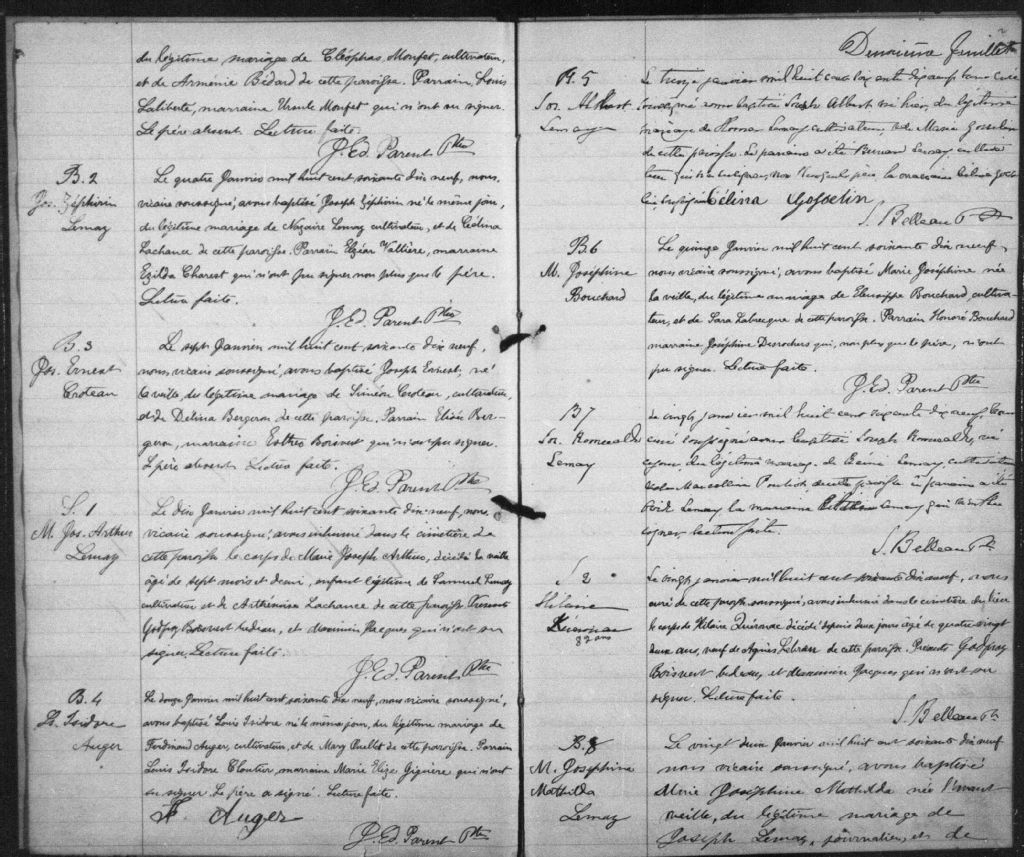 du légitime mariage de Cléophas Monfet, cultivateur,
et de Arménie Bédard de cette paroisse. Parrain, Louis
Laliberté, marraine Ursule Monfet qui n'ont su signer.
Le père absent. Lecture faite.
J. Ed. Parent Ptre
B. 2
Jos. Zéphirin
Lemay
Le quatre Janvier mil huit cent soixante dix neuf, nous,
vicaire soussigné, avons baptisé Joseph Zéphirin né le même jour,
du légitime mariage de Nazaire Lemay cultivateur, et de Cédina
Lachance de cette paroisse. Parrain Elzéar Vallière, marraine
Ezilda Charest qui n'ont pu signer non plus que le père.
Lecture faite.
J. Ed. Parent Ptre
B. 3
Jos. Ernest
Croteau
Le sept Janvier mil huit cent soixante dix neuf,
nous, vicaire soussigné, avons baptisé Joseph Ernest, né
la veille, du légitime mariage de Siméon Croteau, cultivateur,
et de Delina Bergeron de cette paroisse. Parrain Elisée Ber-
geron, marraine Esther Boisvert qui n'ont pu signer.
Le père absent. Lecture faite.
J. Ed. Parent Ptre
S. 1
M. Jos. Arthur
Lemay
Le dix Janvier mil huit cent soixante dix neuf, nous,
vicaire soussigné, avons inhumé dans le cimetière de
cette paroisse le corps de Marie Joseph Arthur, décédé la veille
âgé de sept mois et demi, enfant légitime de Samuel Lemay
cultivateur et de Arthémise Lachance de cette paroisse. Présents
Godfroy Boisvert bedeau, et Jacques qui n'ont su
signer. Lecture faite.
J. Ed. Parent Ptre
B. 4
Ls. Isidore
Auger
Le douze Janvier mil huit cent soixante dix neuf, nous vicaire soussigné,
avons baptisé Louis Isidore né le même jour, du légitime mariage de
Ferdinand Auger, cultivateur, et de Mary Ouellet de cette paroisse. Parrain
Louis Isidore Cloutier, marraine Marie Elize Giguère qui n'ont
su signer. Le père a signé. Lecture faite.
F. Auger
J. Ed. Parent Ptre
Deuxième feuillet
B. 5
Jos. Albert
Lemay
Le treize janvier mil huit cent soixante dix neuf nous curé
soussigné avons baptisé Joseph Albert né hier, du légitime
mariage de Lemay cultivateur, et de Marie Gosselin
de cette paroisse. Le parrain a été Lemay cultiva
teur qui la marraine Célina Gosse
lin Célina Gosselin
S. Belleau Ptre
B. 6
M. Joséphine
Bouchard
Le quinze Janvier mil huit cent soixante dix neuf,
nous vicaire soussigné, avons baptisé Marie Joséphine née
la veille, du légitime mariage de Eleusippe Bouchard cultiva-
teur, et de Sara Labrecque de cette paroisse. Parrain Honoré Bouchard
marraine Joséphine Desrochers qui, non plus que le père, n'ont
pu signer. Lecture faite.
J. Ed. Parent Ptre
B. 7
Jos. Romuald
Lemay
Le vingt janvier mil huit cent soixante dix neuf nous
curé soussigné avons baptisé Joseph Romuald, né
ce jour, du légitime mariage de Lemay, cultivateur
et de Marcelline de cette paroisse le parrain a été
Lemay la marraine Lemay qui
signer lecture faite.
S. Belleau Ptre
S. 2
Hilaire
82 ans
Le vingt janvier mil huit cent soixante dix neuf, nous
curé de cette paroisse soussigné, avons inhumé dans le cimetière du lieu
le corps de Hilaire décédé depuis deux jours âgé de quatre vingt
deux ans, veuf de Agnès de cette paroisse. Présents Godfroy
Boisvert bedeau, et Jacques qui n'ont su
signer. Lecture faite.
S. Belleau Ptre
B. 8
M. Josephine
Mathilda
Lemay
Le vingt deux Janvier mil huit cent soixante dix neuf
nous vicaire soussigné, avons baptisé
Marie Josephine Mathilda née l'avant
veille, du légitime mariage de
Joseph Lemay, journalier, et de